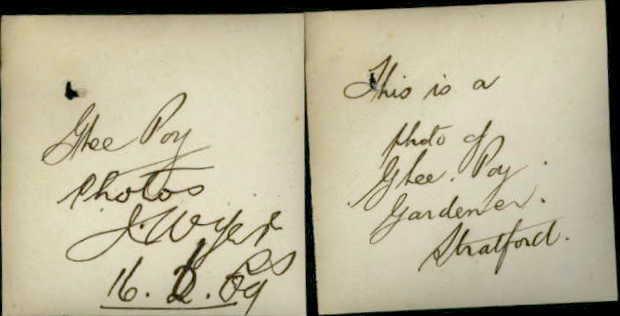 Ghee Poy
Photos
J. Wyer
16. 2. 09
This is a
photo of
Ghee. Poy.
Gardener.
Stratford.